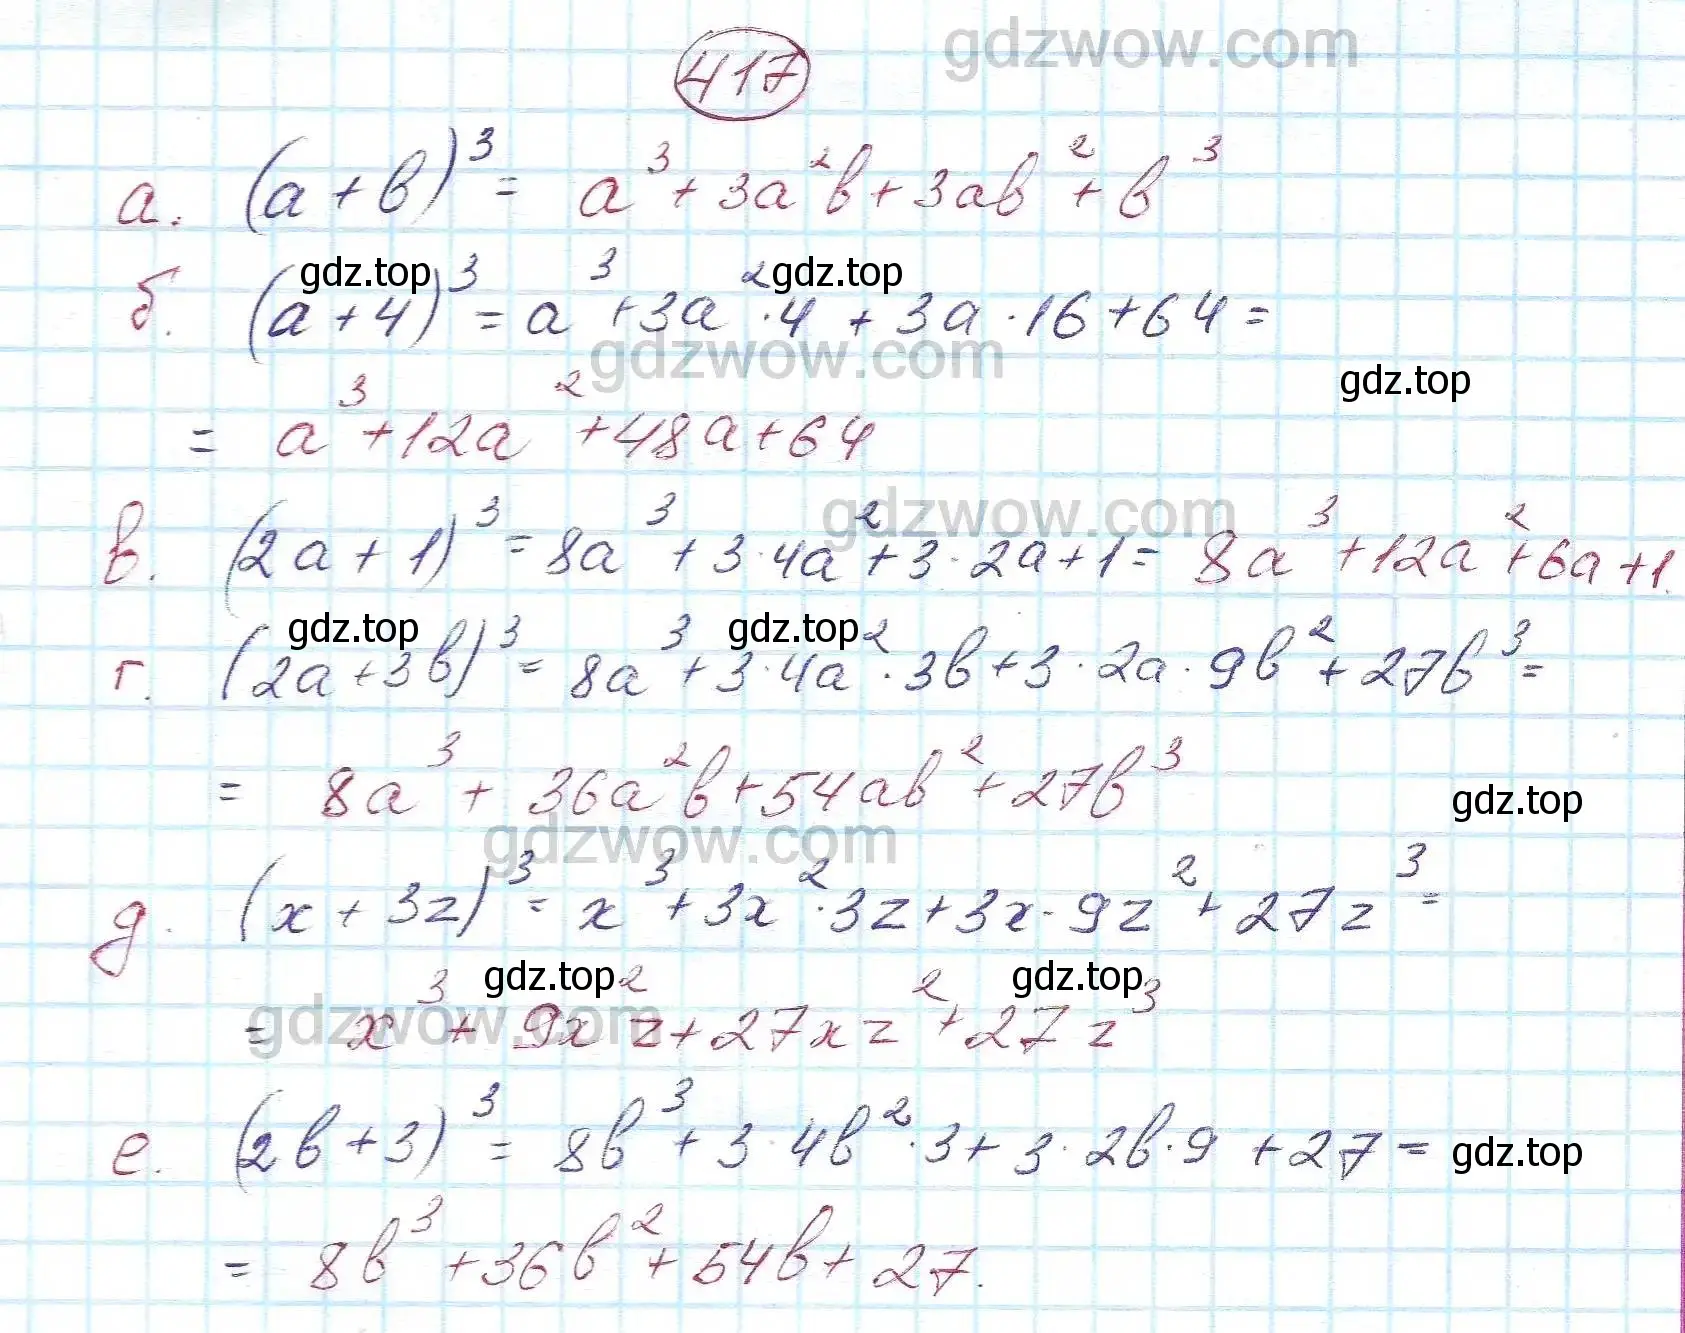 417
gdzwow.com
а. (a+b)³ = a³ + 3a²b + 3ab² + b³
gdz.top
gdz.top
б. (a+4)³ = a³ + 3a²·4 + 3a·16 + 64 =
gdzwow.com
gdz.top
= a³ + 12a² + 48a + 64
gdzwow.com
в. (2a+1)³ = 8a³ + 3·4a² + 3·2a + 1 = 8a³ + 12a² + 6a + 1.
gdz.top
gdz.top
г. (2a+3b)³ = 8a³ + 3·4a²·3b + 3·2a·9b² + 27b³ =
= 8a³ + 36a²b + 54ab² + 27b³
gdz.top
gdzwow.com
д. (x+3z)³ = x³ + 3x²·3z + 3x·9z² + 27z³ =
gdz.top
gdz.top
= x³ + 9x²z + 27xz² + 27z³
gdzwow.com
е. (2b+3)³ = 8b³ + 3·4b²·3 + 3·2b·9 + 27 =
gdz.top
= 8b³ + 36b² + 54b + 27.